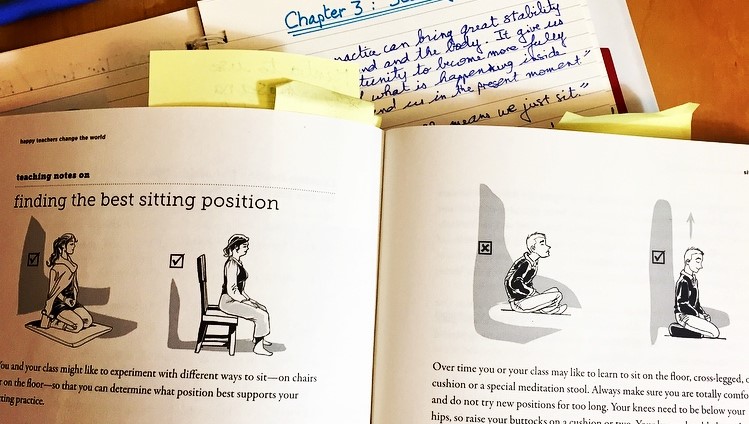 Chapter 3 :
can bring great stability
and the body. It give us
become more fully
what is happening inside
us in the present moment."
means we just sit."
happy teachers change the world
teaching notes on
finding the best sitting position
You and your class might like to experiment with different ways to sit—on chairs
or on the floor—so that you can determine what position best supports your
practice.
Over time you or your class may like to learn to sit on the floor, cross-legged,
cushion or a special meditation stool. Always make sure you are totally
and do not try new positions for too long. Your knees need to be below your
hips, so raise your buttocks on a cushion or